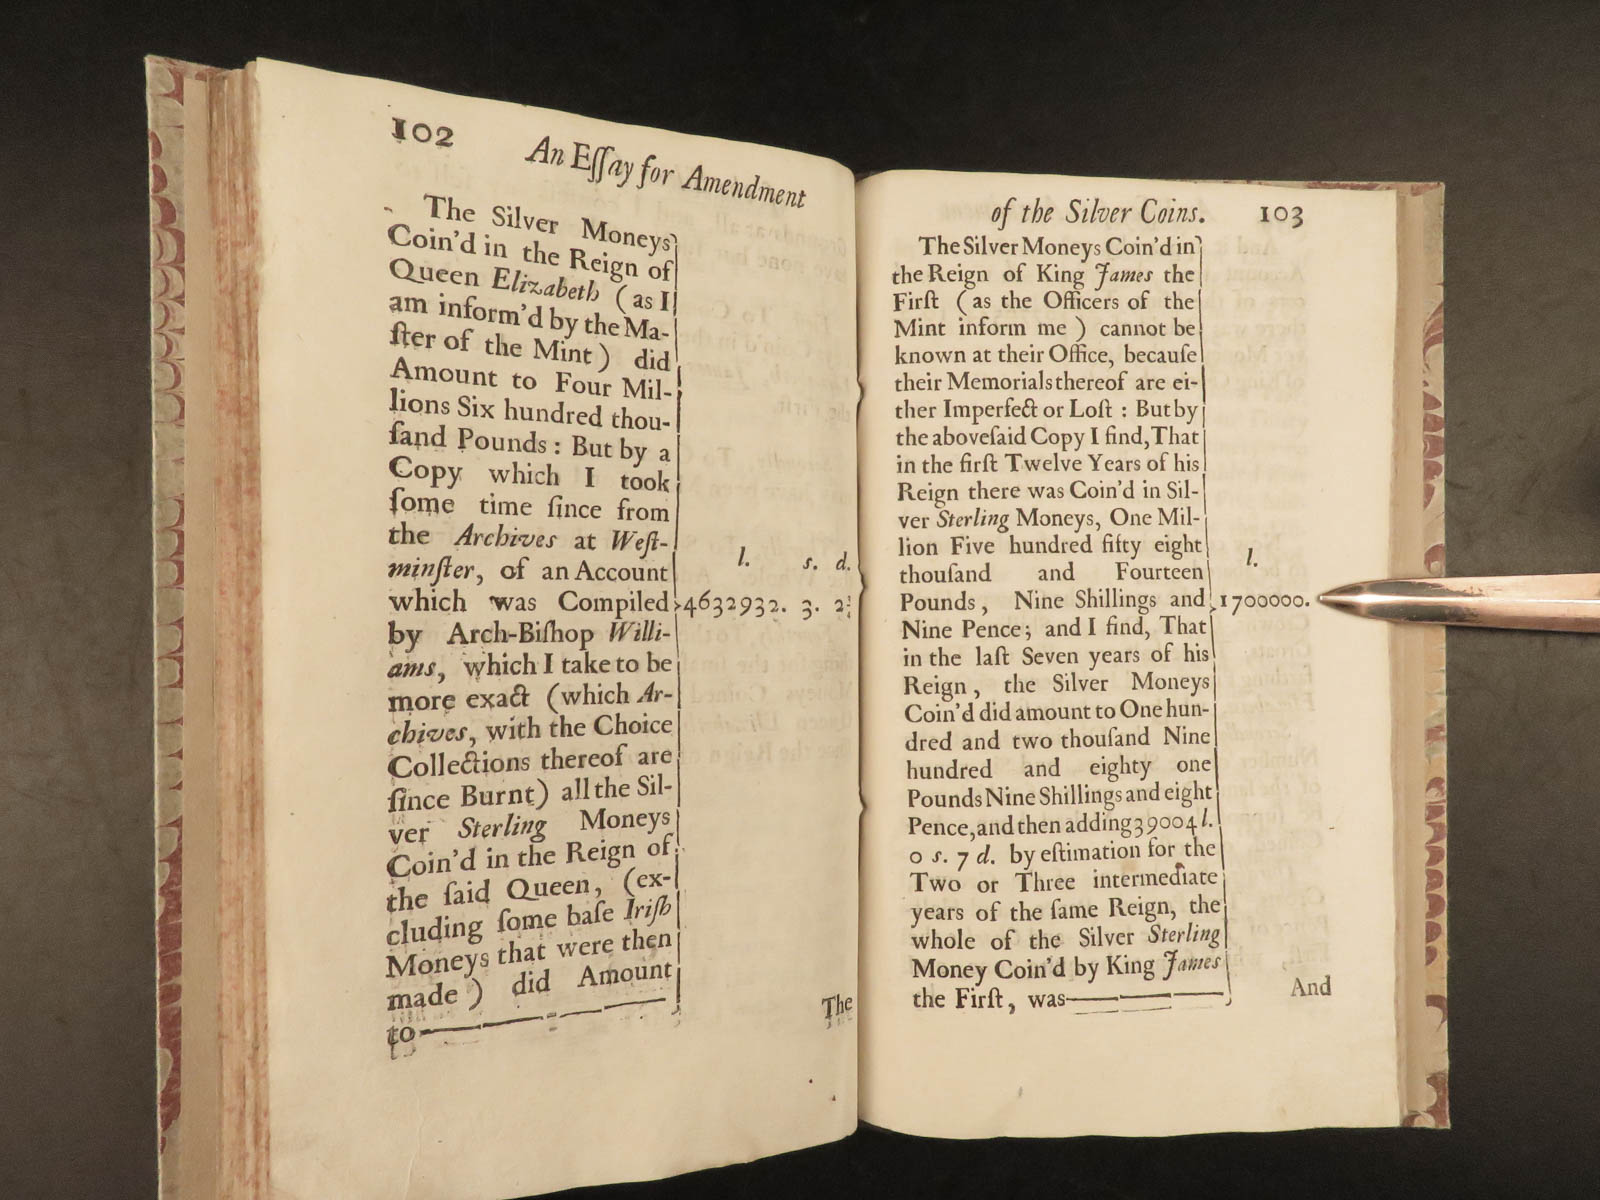 102
An Eſſay for Amendment
The Silver Moneys
Coin'd in the Reign of
Queen Elizabeth (as I
am inform'd by the Ma-
ſter of the Mint) did
Amount to Four Mil-
lions Six hundred thou-
ſand Pounds: But by a
Copy which I took
ſome time ſince from
the Archives at Weſt-
minſter, of an Account
which was Compiled
by Arch-Biſhop Willi-
ams, which I take to be
more exact (which Ar-
chives, with the Choice
Collections thereof are
ſince Burnt) all the Sil-
ver Sterling Moneys
Coin'd in the Reign of
the ſaid Queen, (ex-
cluding ſome baſe Iriſh
Moneys that were then
made) did Amount
to
l. s. d.
4632932. 3. 2
The
of the Silver Coins. 103
The Silver Moneys Coin'd in
the Reign of King James the
Firſt (as the Officers of the
Mint inform me) cannot be
known at their Office, becauſe
their Memorials thereof are ei-
ther Imperfect or Loſt: But by
the aboveſaid Copy I find, That
in the firſt Twelve Years of his
Reign there was Coin'd in Sil-
ver Sterling Moneys, One Mil-
lion Five hundred fifty eight
thouſand and Fourteen
Pounds, Nine Shillings and
Nine Pence; and I find, That
in the laſt Seven years of his
Reign, the Silver Moneys
Coin'd did amount to One hun-
dred and two thouſand Nine
hundred and eighty one
Pounds Nine Shillings and eight
Pence, and then adding 39004 l.
0 s. 7 d. by eſtimation for the
Two or Three intermediate
years of the ſame Reign, the
whole of the Silver Sterling
Money Coin'd by King James
the Firſt, was
l.
1700000.
And